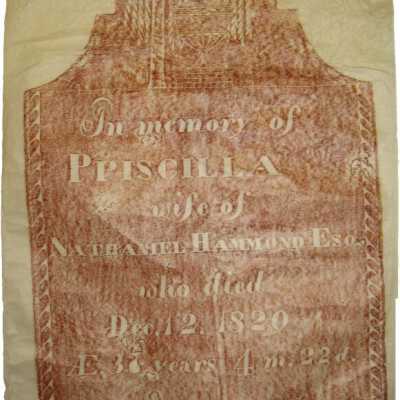 In memory of
PRISCILLA
wife of
NATHANIEL HAMMOND ESQ.
who died
Dec. 12. 1820
Æ. years 4 m. 22 d.